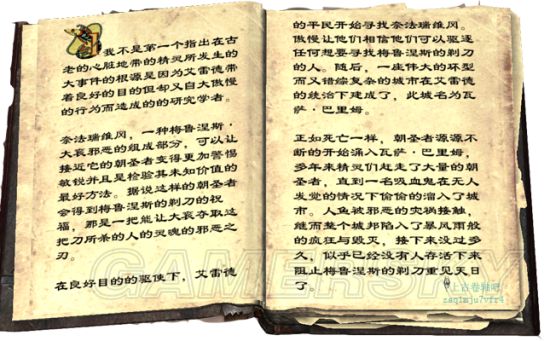 我不是第一个指出在古
老的心脏地带的精灵所发生的
大事件的根源是因为艾雷德带
着良好目的但却又自大傲慢
的行为而造成的的研究学者。
奈法瑞维冈，一种梅鲁涅斯·
大哀邪恶的组成部分，可以让
接近它的朝圣者变得更加警惕
敏锐并且是检验其未知价值的
最好方法。据说这样的朝圣者
会得到梅鲁涅斯的剃刀的祝
福，那是一把能让大哀夺取这
把刀所杀的人的灵魂的邪恶之
刃。
在良好目的的驱使下，艾雷德
的平民开始寻找奈法瑞维冈。
傲慢让他们相信他们可以驱逐
任何想要寻找梅鲁涅斯的剃刀
的人。随后，一座伟大的环型
而又错综复杂的城市在艾雷德
的统治下建成了，此城名为瓦
萨·巴里姆。
正如死亡一样，朝圣者源源不
断的开始涌入瓦萨·巴里姆，
多年来精灵们赶走了大量的朝
圣者，直到一名吸血鬼在无人
发觉的情况下偷偷的溜入了城
市。人鱼被邪恶的灾祸接触，
继而整个城邦陷入了暴风雨般
的疯狂与毁灭，接下来没过多
久，似乎已经没有人存活下来
阻止梅鲁涅斯的剃刀重见天日
了。
GAMERSKY
@上古卷轴吧
zaqlmju7vfr4